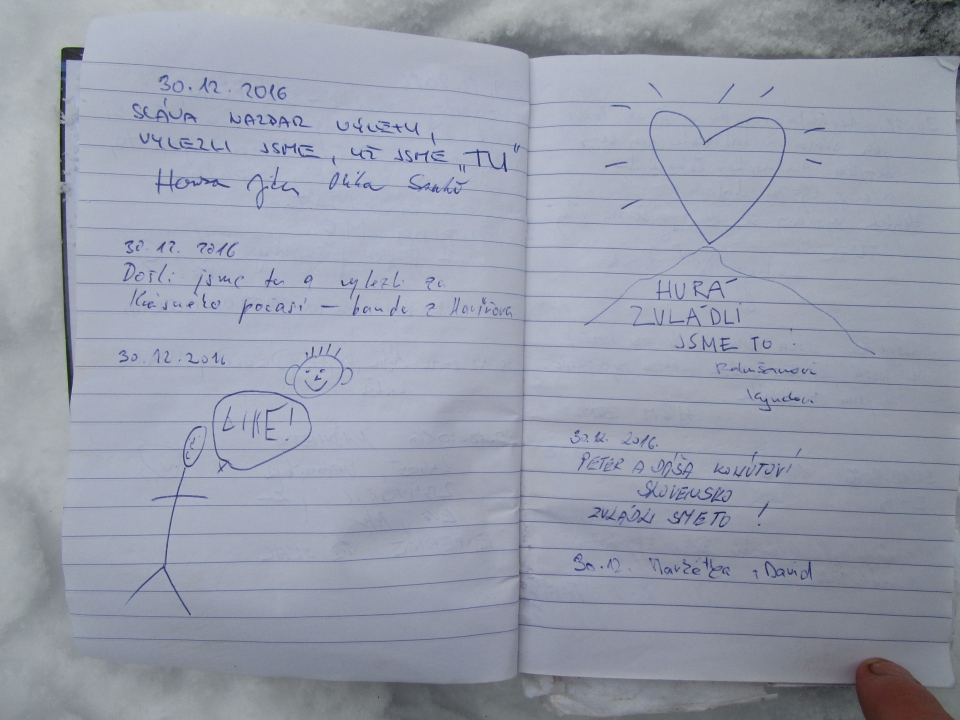 30.12.2016
SLÁVA NAZDAR VÝLETU,
VYLEZLI JSME, UŽ JSME „TU“
Honza Jitka
30.12. 2016
Došli jsme tu a vylezli za
Krásného počasí – banda z Havířova
30.12.2016
LIKE!
HURÁ
ZVLÁDLI
JSME TO!
30.12. 2016.
PETER A DÁŠA KOHÚTOVÍ
SLOVENSKO
ZVLÁDLI SME TO!
30.12. Markétka , David